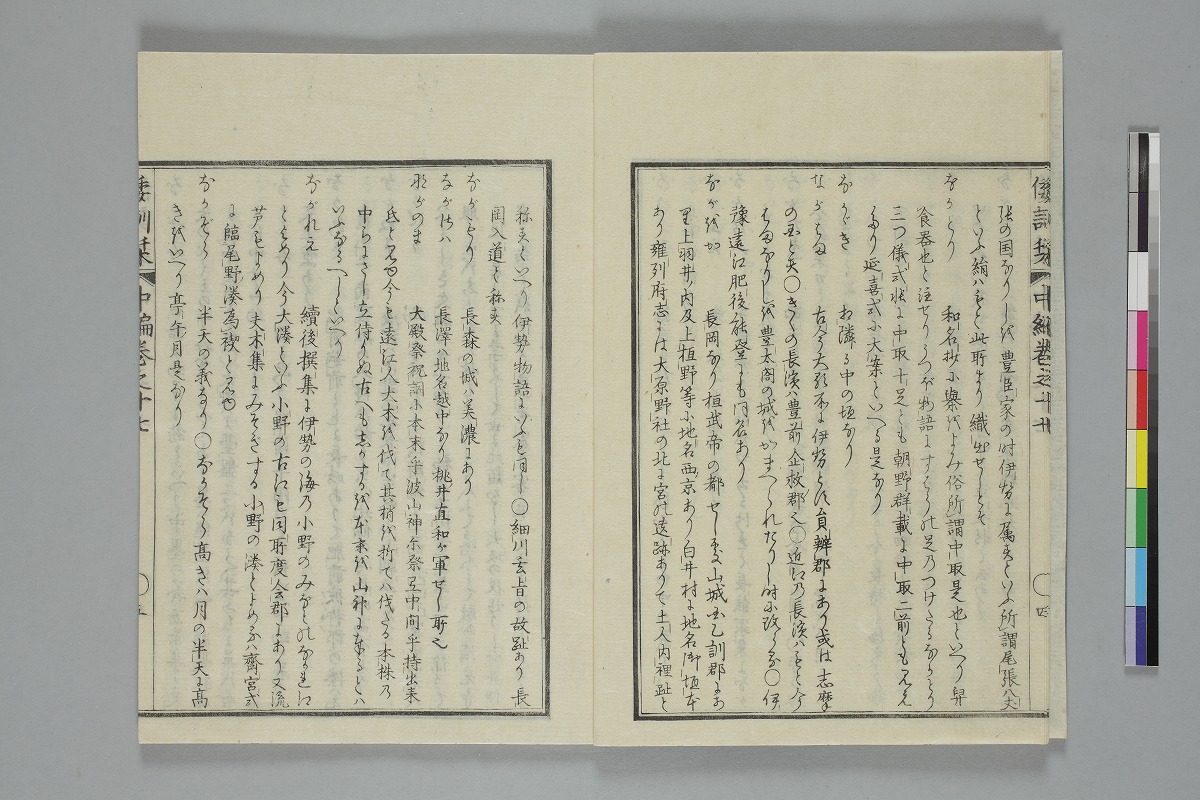 倭訓栞 中編巻之十七
張の国なりしを豊臣家の时伊勢に属すといふ所謂尾張八丈
といふ絹ハもと此所より織出せしとそ
ながとり 和名抄に擧をよみ俗所謂中取是也といへり
食器也と注せりうつほ物語にすはうの足のつけたるなかとり
三つ儀式状に中取十足とも朝野群載に中取二前とも見え
たり延喜式に大案といへる是なり
なかがき お隣る中の垣なり
ながはま 古今大歌所に伊勢とす員辨郡にあり或は志摩
の国と夫〇きくの長濱ハ豊前企救郡也〇近江の長濱ハもと今
はまなりしを豊太閤の城をかまへられたりし时に改る〇伊
豫遠江肥後能登にも同名あり
ながをか 長岡なり桓武帝の都せし處山城国乙訓郡にあ
り上羽井ノ内及上植野等に地名西京あり白井村に地名御垣本
あり雍州府志には大原野社の北に宮の遺跡ありて土人内裡趾と
称すといへり伊勢物語にいふと同し〇細川玄旨の故趾あり長
岡入道と称す
ながもり 長森の城ハ美濃にあり
ながさハ 長澤ハ地名越中なり桃井直和が軍せし所也
ながのま 大殿祭祝詞に本末乎波山神尓祭互中間乎持出来
氏と見ゆ今も遠江人大木を伐て其梢を折てハ伐たる木株の
中らにさし立待りぬ古へも志かするを本末を山神に奉るとハ
いふなるへしといへり
ながれえ 續後撰集に伊勢の海の小野のみなとのなかれ江
とよめり今大湊といふ小野の古江も同所度会郡にあり又流
芦もよめり夫木集にみそぎする小野の湊とよめるハ齋宮式
に臨尾野湊為禊と見ゆ
なかぞら 半天の義なり〇なかそら高きハ月の半天に高
きをいへり亭午月是なり
倭訓栞 中編巻之十七